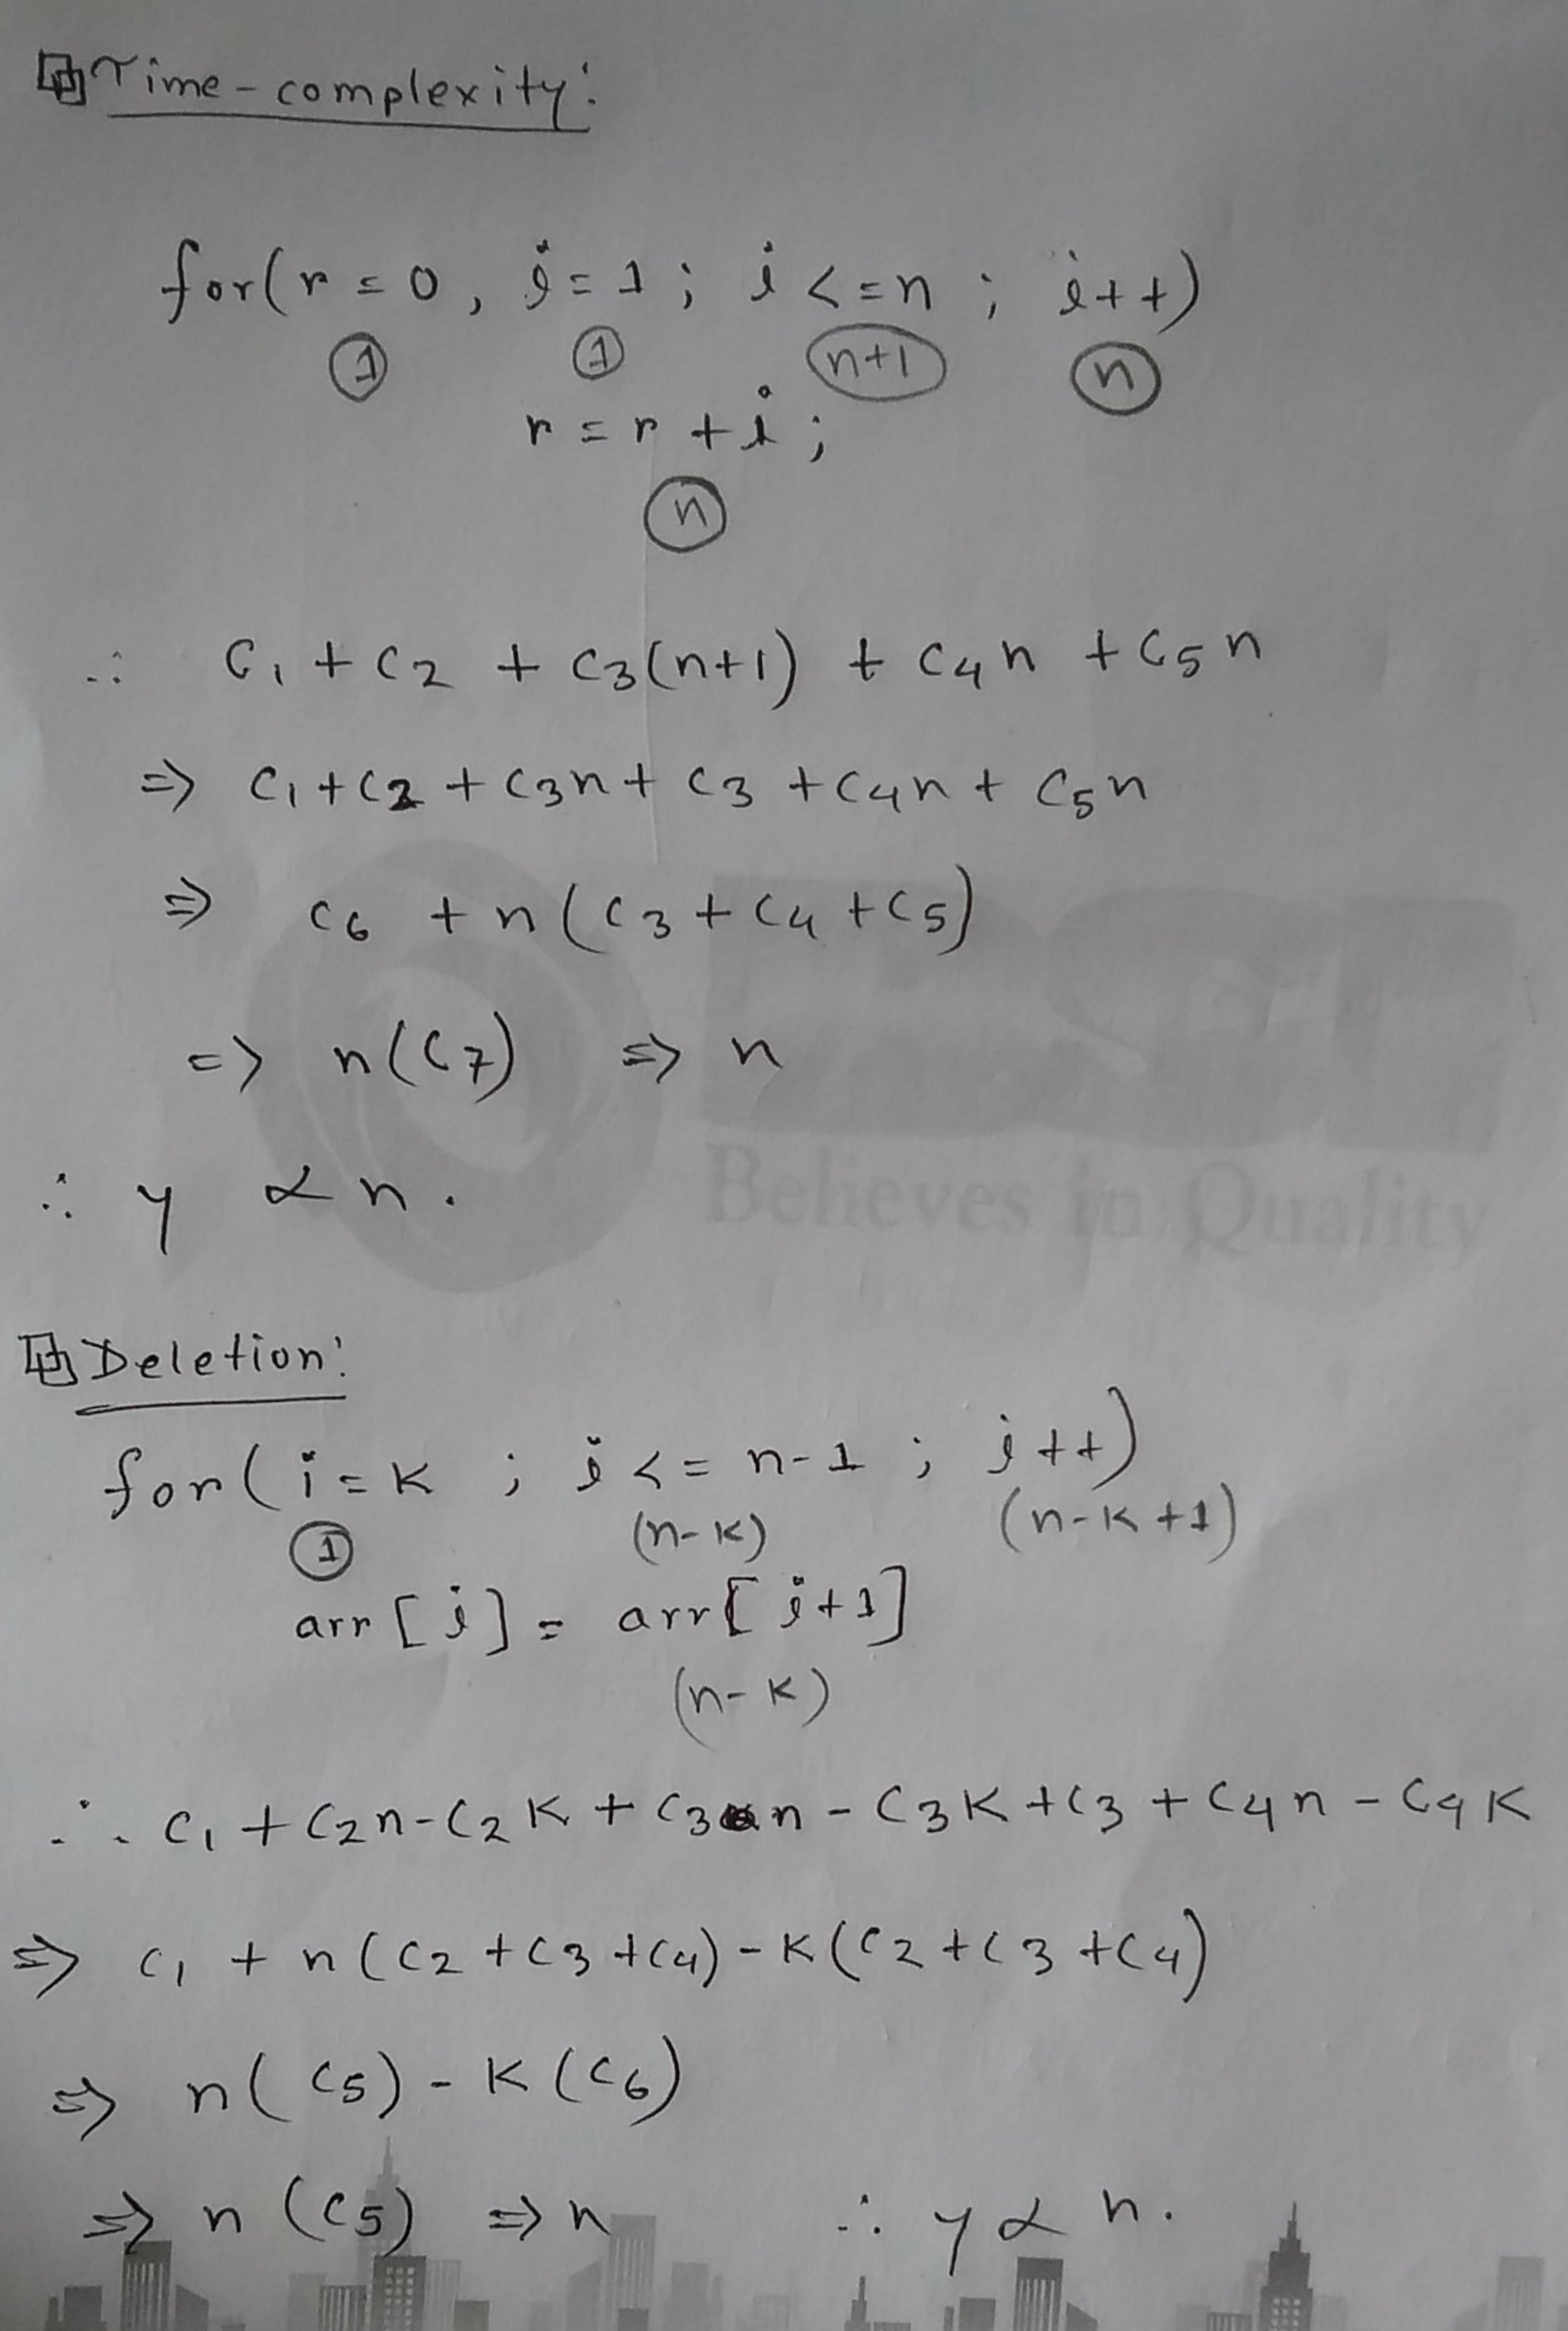 Time-complexity:
for(r=0, i=1; i<=n; i++)
1 1 n+1 n
r=r+i;
n
∴ C1+C2 + C3(n+1) + C4n + C5n
=> C1+C2+C3n+C3+C4n+C5n
=> C6 + n(C3+C4+C5)
=> n(C7) => n
∴ y ∝ n.
Believes in Quality
Deletion:
for(i=K ; i<=n-1 ; i++)
1 (n-K) (n-K+1)
arr[i]=arr[i+1]
(n-K)
∴ C1+C2n-C2K+C3n-C3K+C3+C4n-C4K
=> C1+n(C2+C3+C4)-K(C2+C3+C4)
=> n(C5)-K(C6)
=> n(C5) => n ∴ y ∝ n.